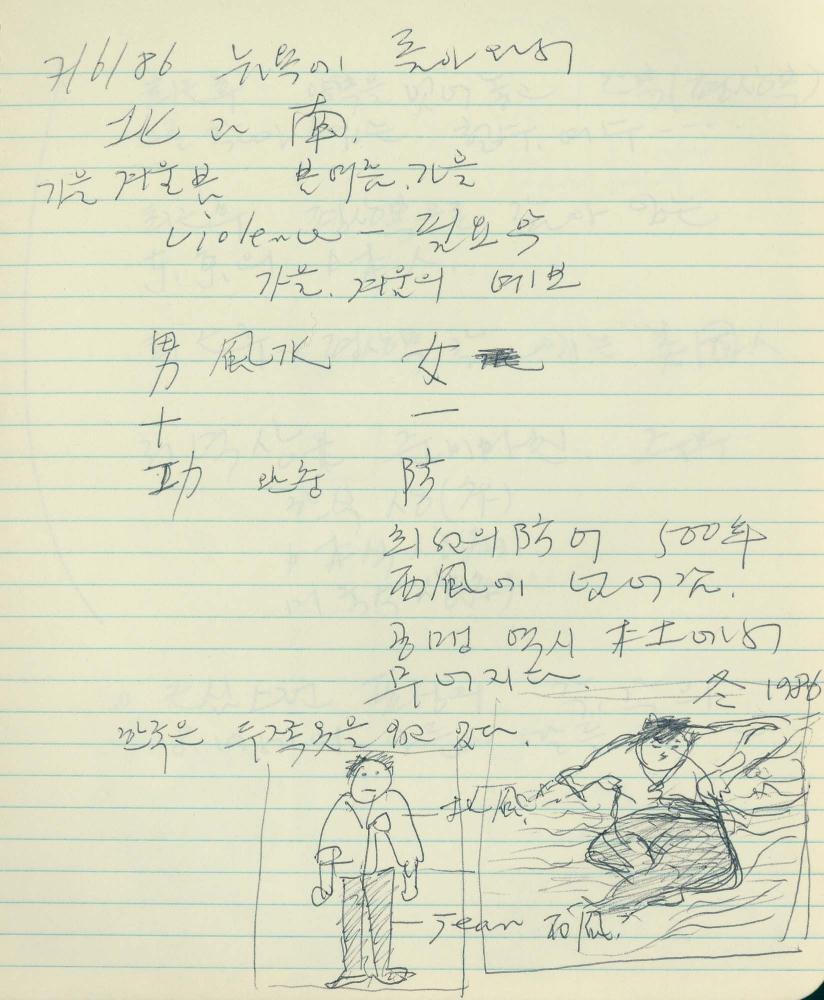 7/6/86 뉴욕에 돌아와서
北과 南.
가을 겨울 봄 봄 여름. 가을
violence — 필요악
가을. 겨울의 예보
男 風水 女
十 一
功 완충 防
최선의 防어 500年
西風에 넘어감.
공명 역시 本土에서
무너지다. 冬 1986
한국은 두가족옷을 입고 있다.
北風.
Jean 西風.